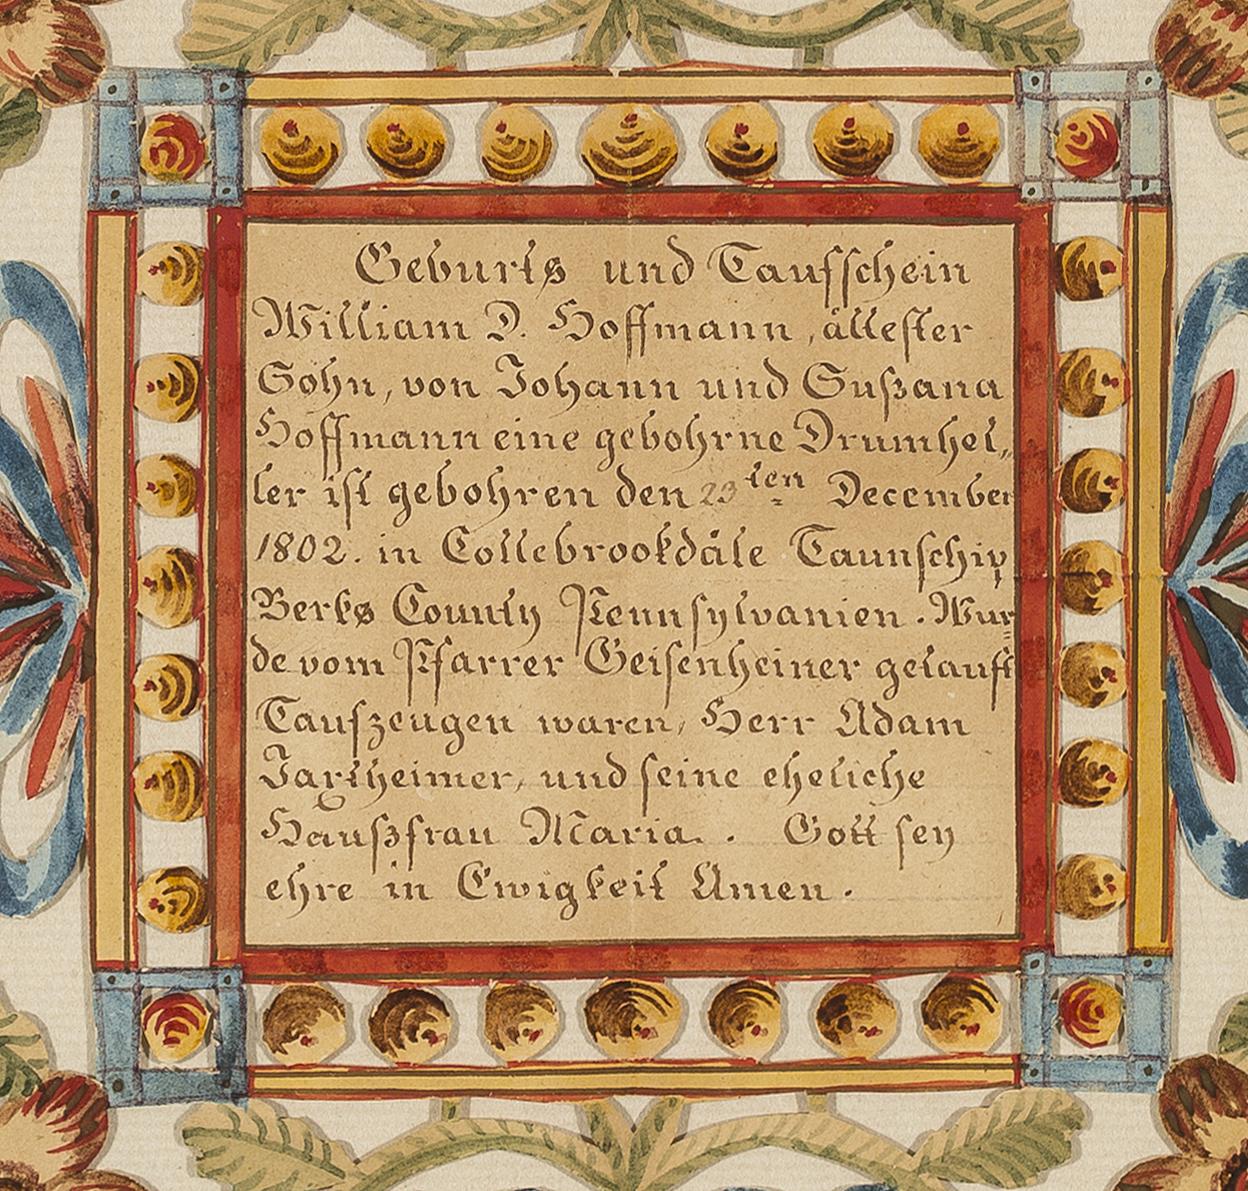 Geburts und Taufschein
William D. Hoffmann, ältester
Sohn, von Johann und Sußana
Hoffmann eine gebohrne Drumhel,
ler ist gebohren den 23ten December
1802. in Collebrookdäle Taunschip
Berks County Pennsylvanien. Wur
de vom Pfarrer Geisenheiner getauft
Taufzeugen waren, Herr Adam
Jartheimer, und seine eheliche
Haußfrau Maria. Gott sey
ehre in Ewigkeit Amen.